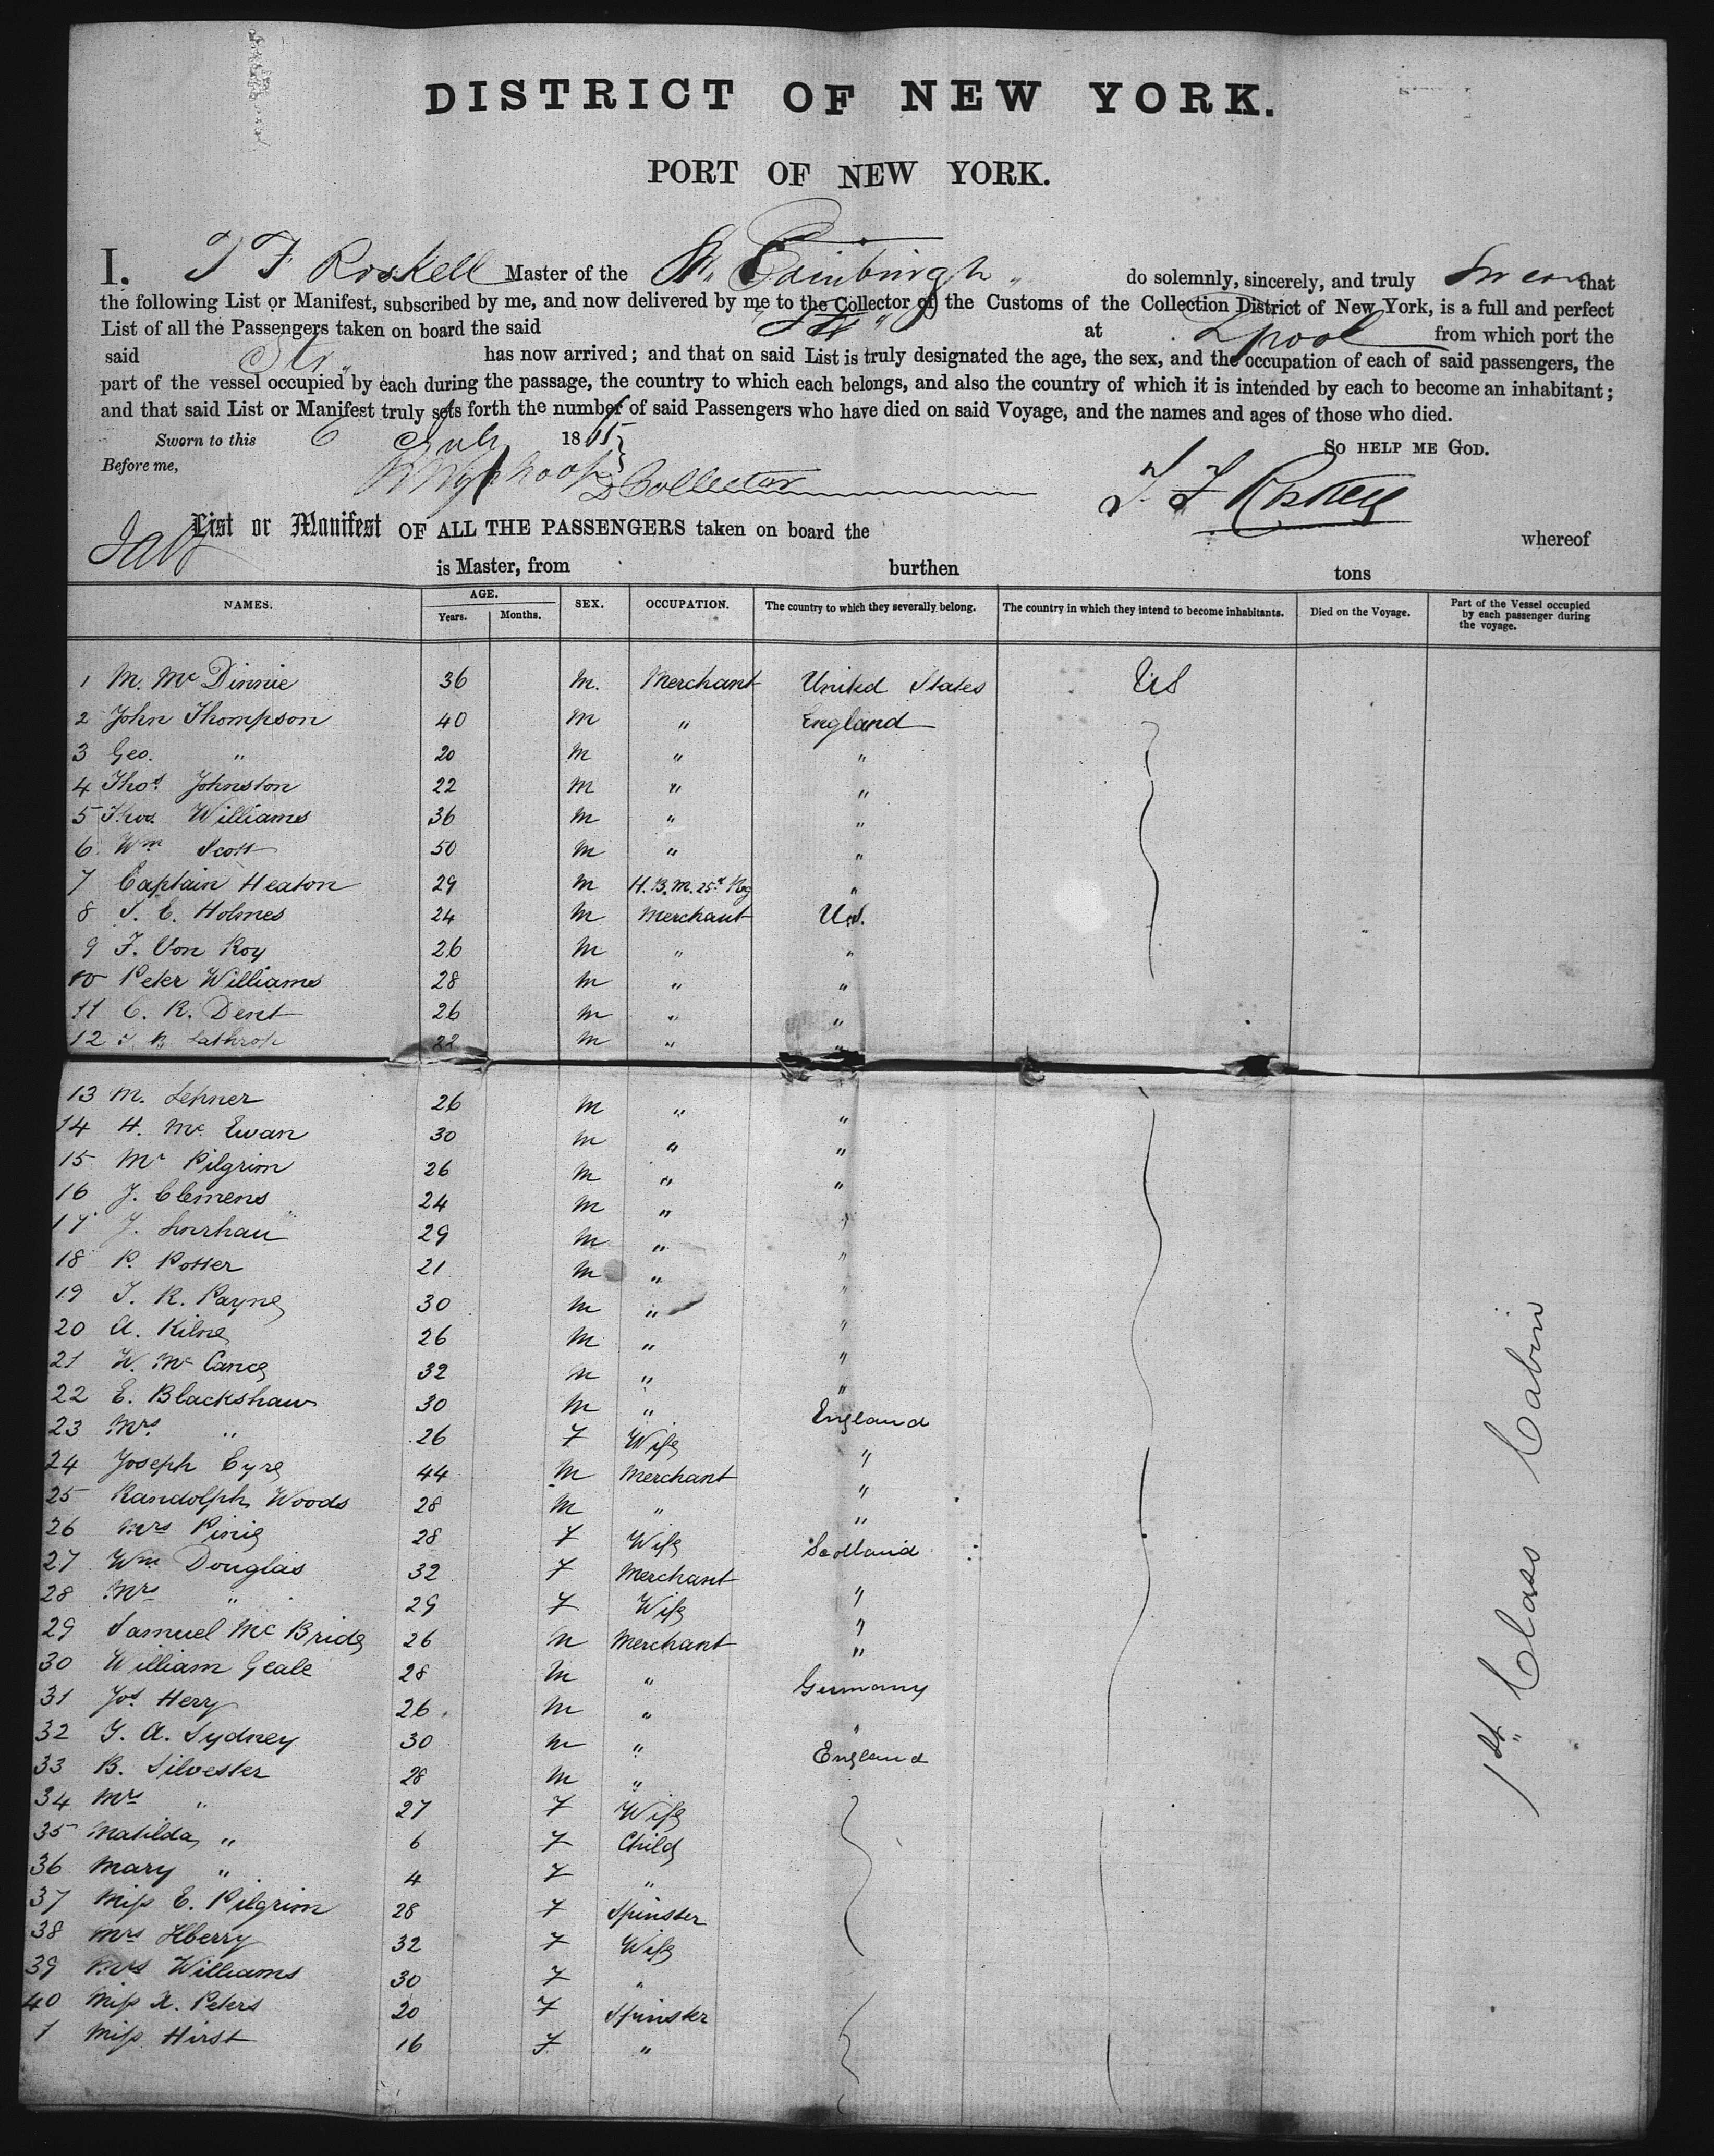 DISTRICT OF NEW YORK.
PORT OF NEW YORK.
I. T F Roskell Master of the Str. Edinburgh do solemnly, sincerely, and truly Swear that
the following List or Manifest, subscribed by me, and now delivered by me to the Collector of the Customs of the Collection District of New York, is a full and perfect
List of all the Passengers taken on board the said Str at Lpool from which port the
said Str has now arrived; and that on said List is truly designated the age, the sex, and the occupation of each of said passengers, the
part of the vessel occupied by each during the passage, the country to which each belongs, and also the country of which it is intended by each to become an inhabitant;
and that said List or Manifest truly sets forth the number of said Passengers who have died on said Voyage, and the names and ages of those who died.
Sworn to this 6 July 1865 SO HELP ME GOD.
Before me, D Collector T. F Roskell
List or Manifest OF ALL THE PASSENGERS taken on board the whereof
is Master, from burthen tons
NAMES. AGE. Years. Months. SEX. OCCUPATION. The country to which they severally belong. The country in which they intend to become inhabitants. Died on the Voyage. Part of the Vessel occupied by each passenger during the voyage.
1 M. Mc Dinnie 36 M. Merchant United States US
2 John Thompson 40 M " England
3 Geo. " 20 M " "
4 Thos Johnston 22 M " "
5 Thos Williams 36 M " "
6 Wm Scott 50 M " "
7 Captain Heaton 29 M H.B.M. 25th Reg "
8 S. E. Holmes 24 M Merchant U.S.
9 F. Von Roy 26 M " "
10 Peter Williams 28 M " "
11 C. R. Dent 26 M " "
12 Lathrop 22 M " "
13 M. Lehner 26 M " "
14 H. Mc Ewan 30 M " "
15 Mr Pilgrim 26 M " "
16 J. Clemens 24 M " "
17 J. 29 M " "
18 P. Potter 21 M " "
19 J. R. Payne 30 M " "
20 A. Kilne 26 M " "
21 W. Mc Cance 32 M " "
22 E. Blackshaw 30 M " England
23 Mrs " 26 F Wife "
24 Joseph Eyre 44 M Merchant "
25 Randolph Woods 28 M " "
26 Mrs Pinie 28 F Wife Scotland
27 Wm Douglas 32 F Merchant "
28 Mrs " 29 F Wife "
29 Samuel Mc Bride 26 M Merchant "
30 William Geale 28 M " Germany
31 Jos. Herry 26 M " "
32 J. A. Sydney 30 M " England
33 B. Silvester 28 M "
34 Mrs " 27 F Wife
35 Matilda " 6 F Child
36 Mary " 4 F "
37 Miss E. Pilgrim 28 F Spinster
38 Mrs 32 F Wife
39 Mrs Williams 30 F "
40 Miss H. Peters 20 F Spinster
1 Miss Hirst 16 F "
1st Class Cabin